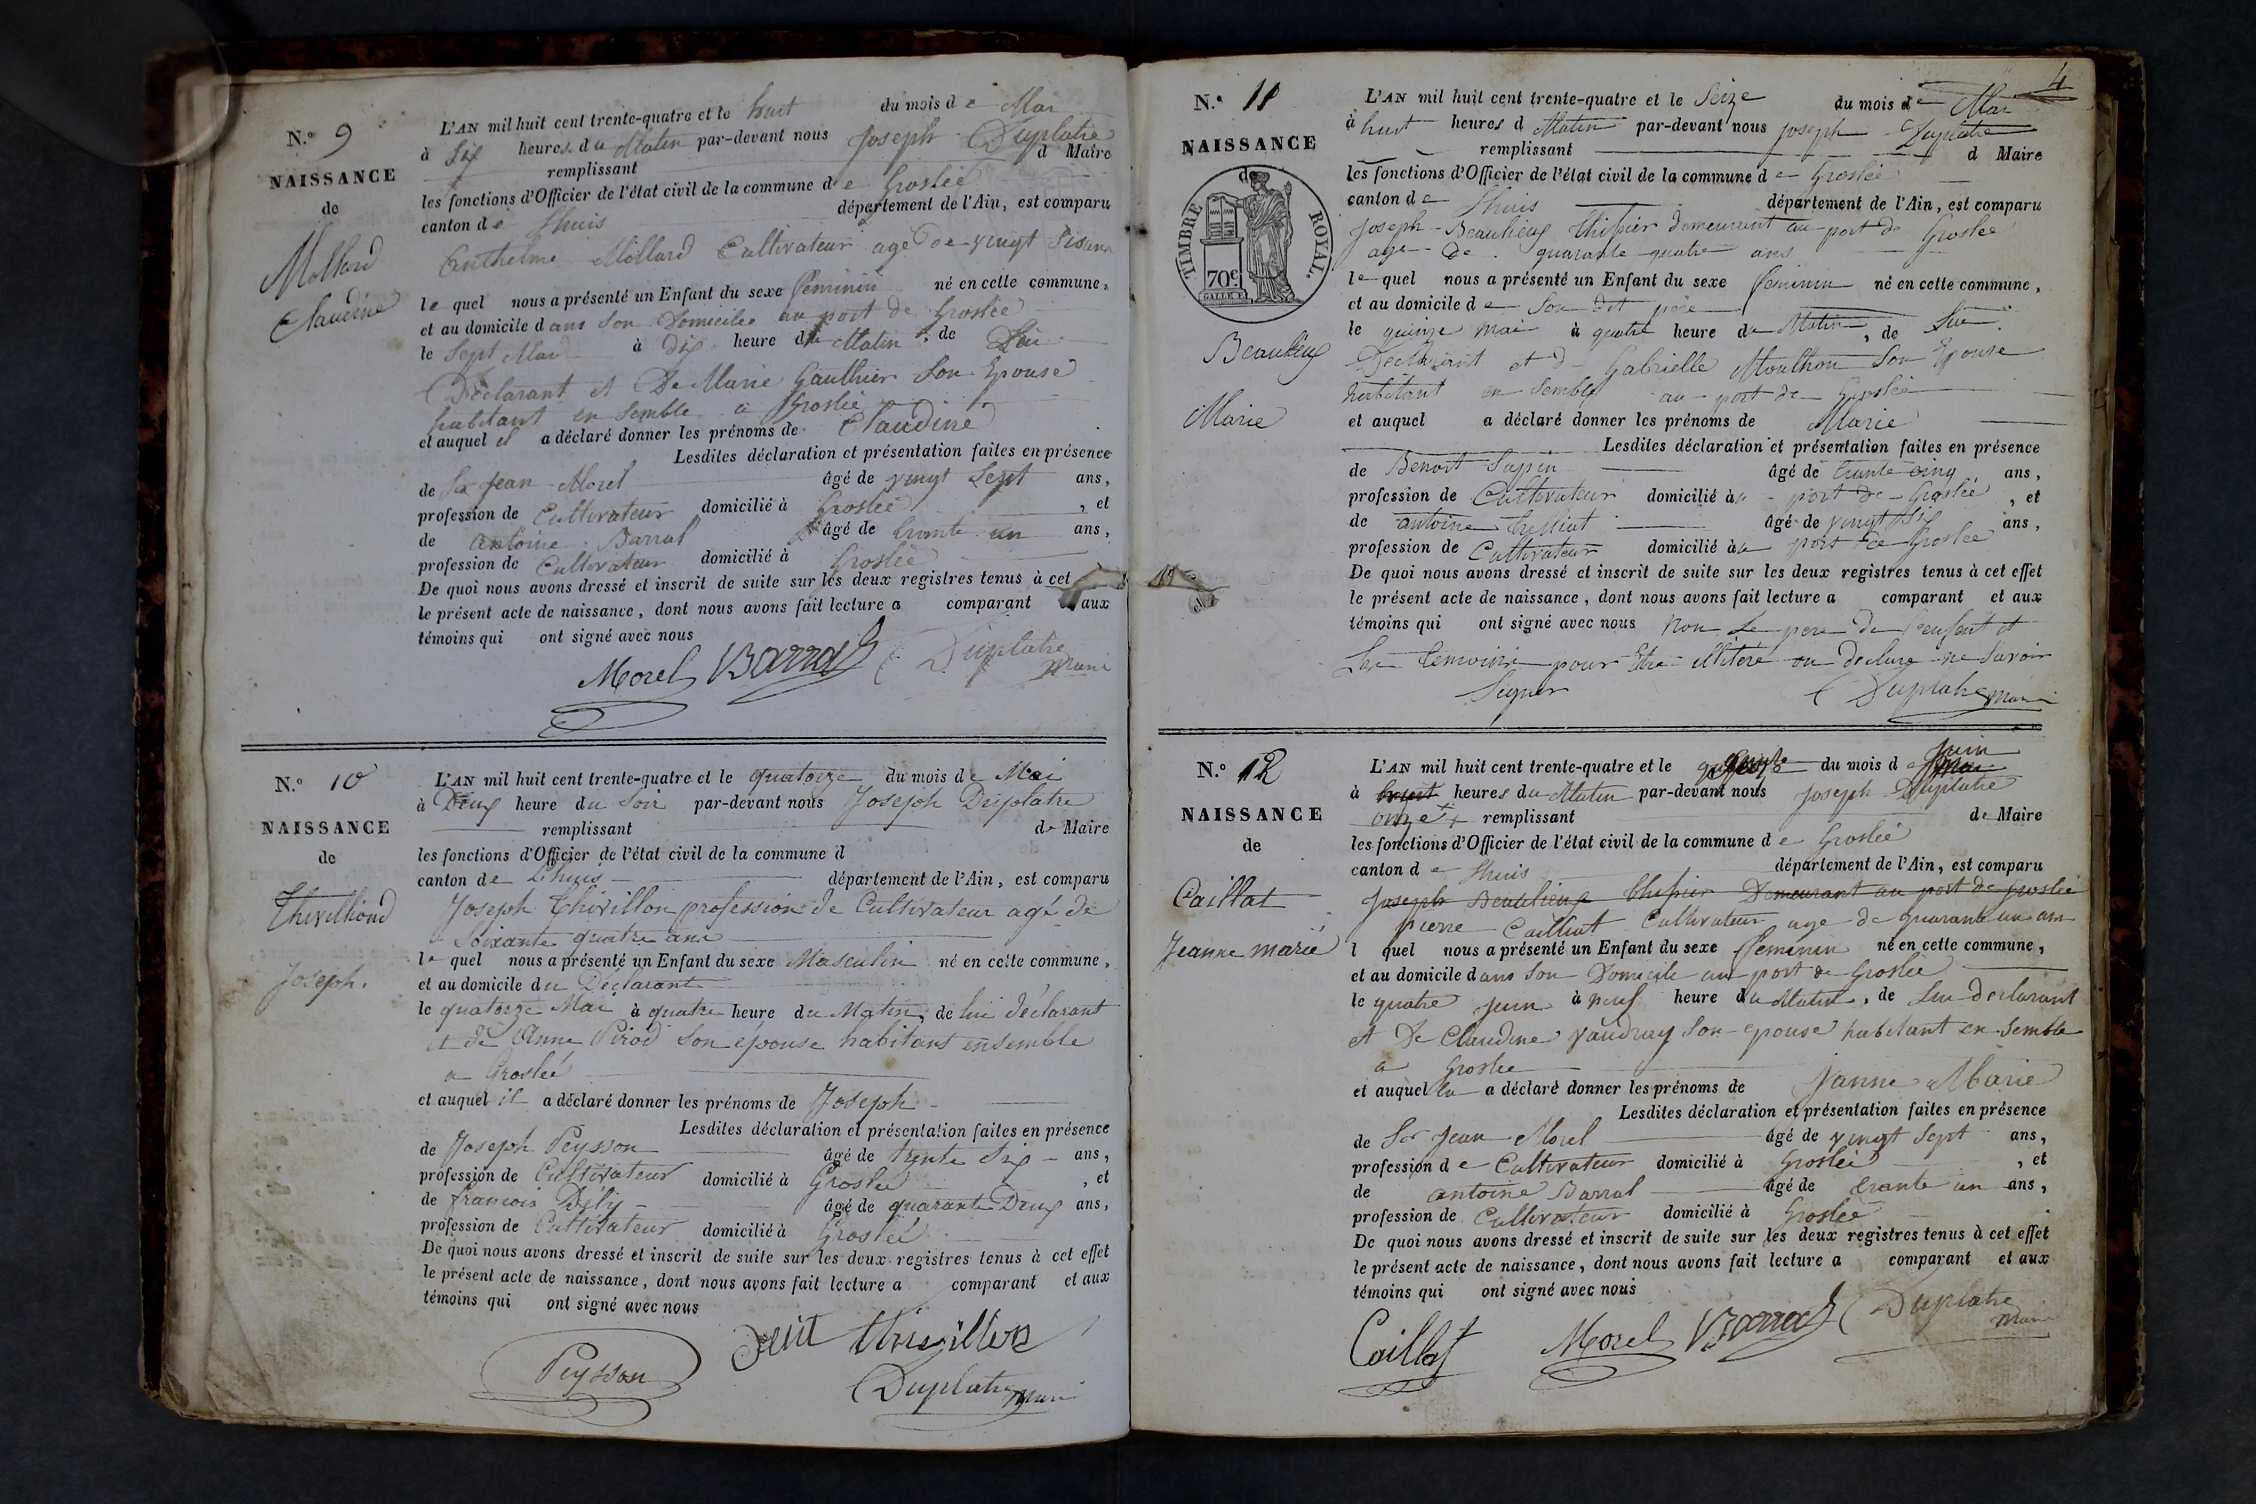 N.° 9
NAISSANCE
de
Mollard
Claudine
L'AN mil huit cent trente-quatre et le huit du mois de Mai
à Six heures du Matin par-devant nous Joseph Duplatre
remplissant d Maire
les fonctions d'Officier de l'état civil de la commune de Groslée
canton de Lhuis département de l'Ain, est comparu
Anthelme Mollard Cultivateur agé de vingt
le quel nous a présenté un Enfant du sexe feminin né en cette commune,
et au domicile dans son Domicile au port de Groslée
le Sept Mai à Dix heure du Matin, de Lui
Déclarant et De Marie Gauthier Son Epouse
habitant en semble a Groslée
et auquel il a déclaré donner les prénoms de Claudine
Lesdites déclaration et présentation faites en présence
de Sr Jean Morel âgé de vingt Sept ans,
profession de Cultivateur domicilié à Groslée, et
de antoine Barral âgé de trante un ans,
profession de Cultivateur domicilié à Groslée
De quoi nous avons dressé et inscrit de suite sur les deux registres tenus à cet
le présent acte de naissance, dont nous avons fait lecture a comparant aux
témoins qui ont signé avec nous
Morel Barral Duplatre
Maire
N.° 10
NAISSANCE
de
Thevillond
Joseph.
L'AN mil huit cent trente-quatre et le quatorze du mois de Mai
à Deux heure du Soir par-devant nous Joseph Duplatre
remplissant de Maire
les fonctions d'Officier de l'état civil de la commune d
canton de Lhuis département de l'Ain, est comparu
Joseph Thivillon profession de Cultivateur agé de
Soixante quatre ans
le quel nous a présenté un Enfant du sexe Masculin né en cette commune,
et au domicile du Déclarant
le quatorze Mai à quatre heure du Matin, de lui déclarant
et de Anne Pirod son épouse habitans ensemble
a Groslée
et auquel il a déclaré donner les prénoms de Joseph
Lesdites déclaration et présentation faites en présence
de Joseph Peysson âgé de trente Six ans,
profession de Cultivateur domicilié à Groslée, et
de francois âgé de quarante Deux ans,
profession de Cultivateur domicilié à Groslée
De quoi nous avons dressé et inscrit de suite sur les deux registres tenus à cet effet
le présent acte de naissance, dont nous avons fait lecture a comparant et aux
témoins qui ont signé avec nous
Peysson thivillon
Duplatre Maire
4
N.° 11
NAISSANCE
de
TIMBRE ROYAL.
70c
Beaulieux
Marie
L'AN mil huit cent trente-quatre et le Seize du mois de Mai
à huit heures d Matin par-devant nous Joseph Duplatre
remplissant d Maire
les fonctions d'Officier de l'état civil de la commune de Groslée
canton de Lhuis département de l'Ain, est comparu
Joseph Beaulieux thissier demeurant au port de Groslée
age de quarante quatre ans
le quel nous a présenté un Enfant du sexe feminin né en cette commune,
et au domicile de Son dit père
le quinze mai à quatre heure du Matin, de Lui
Déclarant et d Gabrielle Monthon Son Epouse
habitant en semble au port de Groslée
et auquel a déclaré donner les prénoms de Marie
Lesdites déclaration et présentation faites en présence
de Benoit Sapin âgé de trante cinq ans,
profession de Cultivateur domicilié à port de Groslée, et
de antoine âgé de vingt six ans,
profession de Cultivateur domicilié à port de Groslée
De quoi nous avons dressé et inscrit de suite sur les deux registres tenus à cet effet
le présent acte de naissance, dont nous avons fait lecture a comparant et aux
témoins qui ont signé avec nous Non Le pere de l'enfent et
Les temoins pour Etre illitere on declare ne Savoir
Signer Duplatre Maire
N.° 12
NAISSANCE
de
Caillat
Jeanne marie
L'AN mil huit cent trente-quatre et le du mois d Juin
à huit heures du Matin par-devant nous Joseph Duplatre
onze remplissant de Maire
les fonctions d'Officier de l'état civil de la commune de Groslée
canton de Lhuis département de l'Ain, est comparu
Joseph Beaulieux thissier Demeurant au port de groslée
pierre Cailliat Cultivateur age de quarante un ans
l quel nous a présenté un Enfant du sexe feminin né en cette commune,
et au domicile dans Son Domicile au port de Groslée
le quatre juin à neuf heure du Matin, de Lui declarant
et De Claudine vaudray Son epouse habitant en semble
a Groslée
et auquel a déclaré donner les prénoms de Janne Marie
Lesdites déclaration et présentation faites en présence
de Sr Jean Morel âgé de vingt Sept ans,
profession de Cultivateur domicilié à Groslée, et
de antoine Barral âgé de trante un ans,
profession de Cultivateur domicilié à Groslée
De quoi nous avons dressé et inscrit de suite sur les deux registres tenus à cet effet
le présent acte de naissance, dont nous avons fait lecture a comparant et aux
témoins qui ont signé avec nous
Caillat Morel Barral Duplatre
Maire